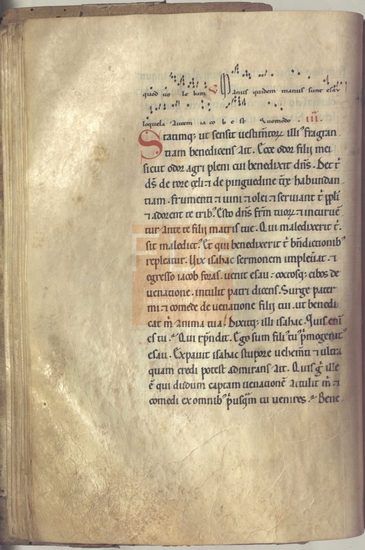 quod uolebam ℣ Manus quidem manus sunt esau
Statimq; ut sensit uestimtorum illi' fragran
tiam benedicens ait. Ecce odor filii mei
sicut odor agri pleni cui benedixit dns. Det t'
ds de rore celi & de pinguedine habundan
tiam. frumenti & uini & olei & seruiant t' ppli
& adorent te trib'. Esto dns frm tuor & incuruent
tur ante te filii matris tue. Qui maledixerit t'
sit maledict'. Et qui benedixerit t' bndictionib'
repleatur. Vix isahac sermonem impleuat. &
egresso iacob foras. uenit esau. coctosq; cibos de
uenatione. intulit patri dicens. Surge pater
mi & comede de uenatione filii tui. ut benedi
cat m' anima tua. Dixitq; illi isahac. Quis eni
es tu. Qui rpndit. Ego sum fili' tu' pmogenit'
esau. Expauit isahac stupore uehemti & ultra
quam credi potest admirans ait. Quis g' ille
e' qui dudum captam uenatione attulit m' &
comedi ex omnib' pusqm tu uenires. Bene